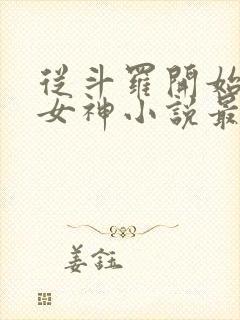 從斗羅開始
女神小說最
姜鈺